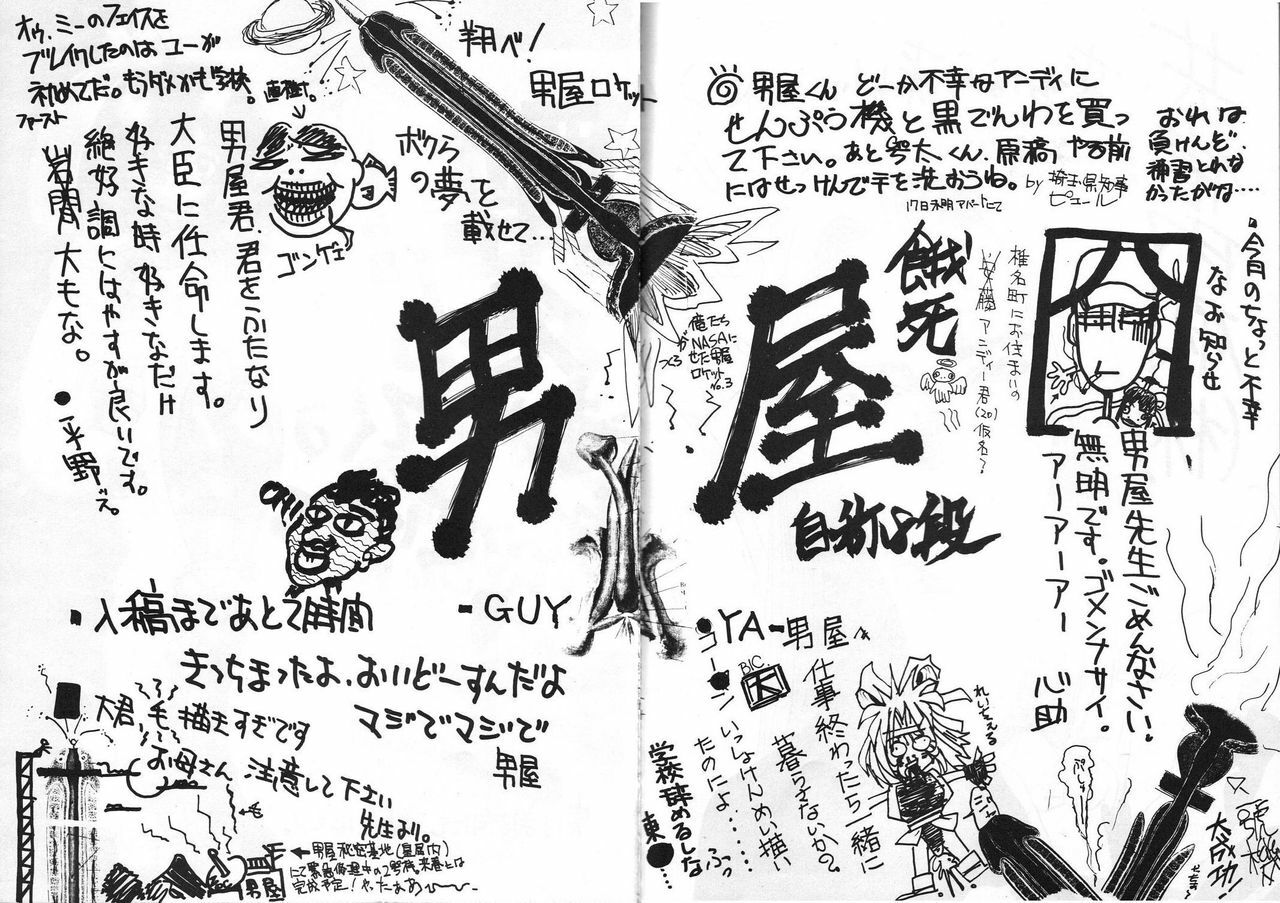 オゥ、ミーのフェイスを
ブレイクしたのはユーが
初めてだ。もうダメかも学校。
ファースト
直樹↑。
翔べ!
男屋ロケット
ボクら
の夢を
載せて…
男屋君、君をふたなり
大臣に任命します。
好きな時好きなだけ
絶好調にはやすが良いです。
岩間大もな。
●平野ぇ。
ゴンゲェ
◎男屋くん どーか不幸なアンディに
せんぷう機と黒でんわを買っ
て下さい。あと 太くん、原稿やる前
にはせっけんで手を洗おうね。
by 埼玉県知事
ピュール
17日未明アパートにて
おれは
負けんど、
練習とれな
かったがな…
・今月のちょっと不幸
なお知らせ
餓死
椎名町にお住まいの
安藤アンディー君(20)仮名?
俺たち
がNASAに
つくらせた男屋
ロケット
No.3
男屋
自称8段
男屋先生ごめんなさい。
無明です。ゴメンナサイ。
アーアーアアー 心助
・入稿まであと2時間
きっちまったよ、おいどーすんだよ
マジでマジで
男屋
-GUY
●YA-男屋
コーマン
BIC
大
仕事終わったら一緒に
暮らさないか?
いっしょけんめい描い
たのによ……ふっ
学校辞めるしな
東●…
大君、毛描きすぎです
お母さん 注意して下さい
先生より。
←男屋秘密基地(皇居内)
にて緊急修理中の2号機。来春には
完成予定!やったぁぁ~~
男屋
れいぞえる
ぷしゅ
大成功!!